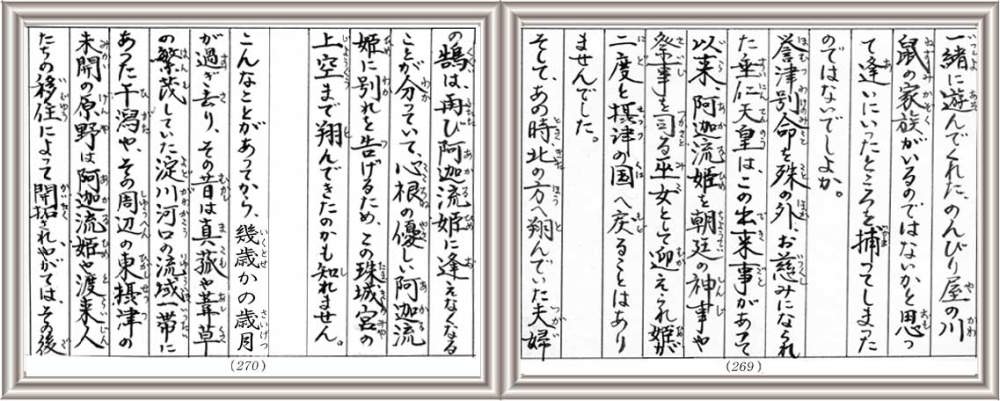 一緒に遊んでくれた、のんびり屋の川
鼠の家族がいるのではないかと思っ
て逢いにいったところを捕ってしまった
のではないでしょか。
誉津別命を殊の外、お慈みになられ
た垂仁天皇は、この出来事があって
以来、阿迦流姫を朝廷の神事や
祭事を司る巫女として迎えられ姫が
二度と摂津の国へ戻ることはあり
ませんでした。
そして、あの時、北の方へ翔んでいた夫婦
(269)
の鵠は、再び阿迦流姫に逢えなくなる
ことが分っていて、心根の優しい阿迦流
姫に別れを告げるため、この珠城宮の
上空まで翔んできたのかも知れません。
こんなことがあってから、幾歳かの歳月
が過ぎ去り、その昔は真菰や葦草
の繁茂していた淀川河口の流域一帯に
あった干潟や、その周辺の東摂津の
未開の原野は阿迦流姫や渡来人
たちの移住によって開拓されやがては、その後
(270)